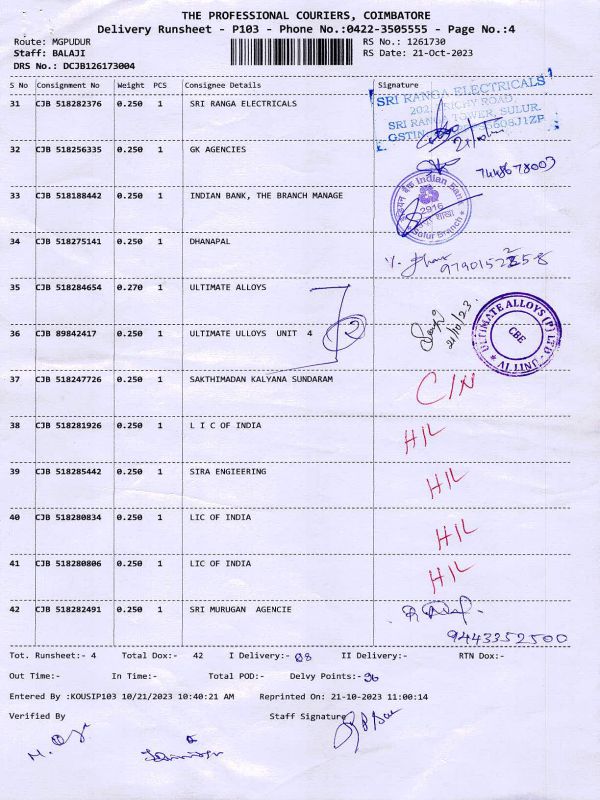 THE PROFESSIONAL COURIERS, COIMBATORE
Delivery Runsheet - P103 - Phone No.:0422-3505555 - Page No.:4
Route: MGPUDUR RS No.: 1261730
Staff: BALAJI RS Date: 21-Oct-2023
DRS No.: DCJB126173004
S No Consignment No Weight PCS Consignee Details Signature
31 CJB 518282376 0.250 1 SRI RANGA ELECTRICALS
SRI RANGA ELECTRICALS
202, TRICHY ROAD,
SRI RANGA TOWER, SULUR.
GSTIN
32 CJB 518256335 0.250 1 GK AGENCIES
33 CJB 518188442 0.250 1 INDIAN BANK, THE BRANCH MANAGE
इंडियन बैंक Indian Bank
2916
Sulur Branch
34 CJB 518275141 0.250 1 DHANAPAL
35 CJB 518284654 0.270 1 ULTIMATE ALLOYS
36 CJB 89842417 0.250 1 ULTIMATE ULLOYS UNIT 4
21/10/23.
ULTIMATE ALLOYS (P) LTD - UNIT IV
CBE
37 CJB 518247726 0.250 1 SAKTHIMADAN KALYANA SUNDARAM C/N
38 CJB 518281926 0.250 1 L I C OF INDIA H/L
39 CJB 518285442 0.250 1 SIRA ENGIEERING H/L
40 CJB 518280834 0.250 1 LIC OF INDIA H/L
41 CJB 518280806 0.250 1 LIC OF INDIA H/L
42 CJB 518282491 0.250 1 SRI MURUGAN AGENCIE
9443352500
Tot. Runsheet:- 4 Total Dox:- 42 I Delivery:- 08 II Delivery:- RTN Dox:-
Out Time:- In Time:- Total POD:- Delvy Points:- 36
Entered By :KOUSIP103 10/21/2023 10:40:21 AM Reprinted On: 21-10-2023 11:00:14
Verified By Staff Signature